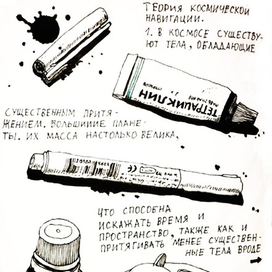 ТЕОРИЯ КОСМИЧЕСКОЙ
НАВИГАЦИИ.
1. В КОСМОСЕ СУЩЕСТВУ-
ЮТ ТЕЛА, ОБЛАДАЮЩИЕ
ТЕТРАЦИКЛИН
СУЩЕСТВЕННЫМ ПРИТЯ-
ЖЕНИЕМ. БОЛЬШИЕ ПЛАНЕ-
ТЫ. ИХ МАССА НАСТОЛЬКО ВЕЛИКА,
ЧТО СПОСОБНА
ИСКАЖАТЬ ВРЕМЯ И
ПРОСТРАНСТВО, ТАКЖЕ КАК И
ПРИТЯГИВАТЬ МЕНЕЕ СУЩЕСТВЕН-
НЫЕ ТЕЛА ВРОДЕ